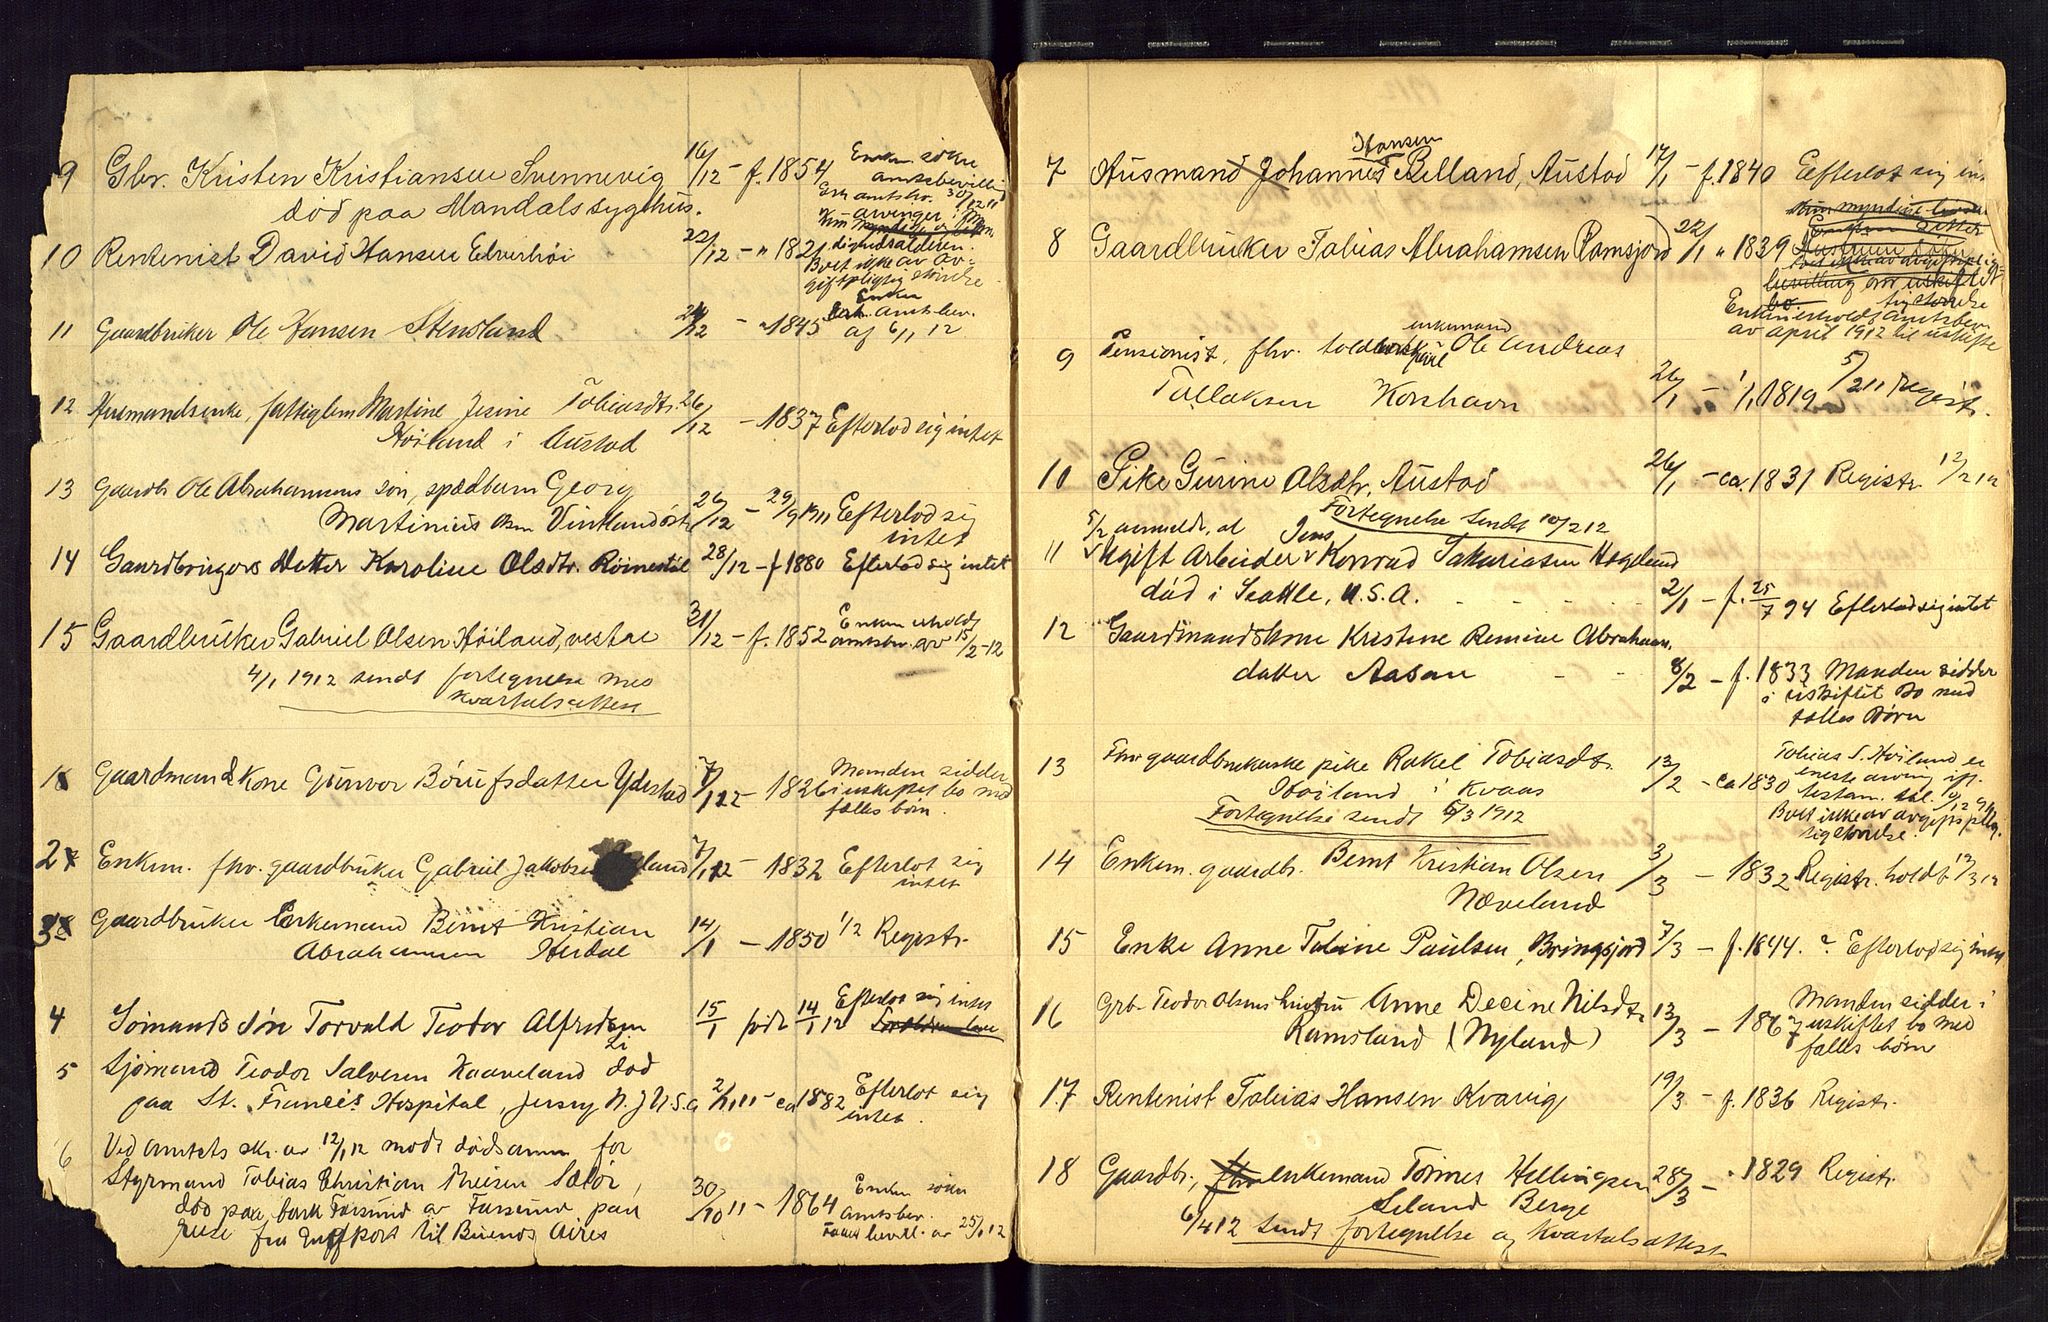 9 Gbr. Kristen Kristiansen Svennevig 16/12 - f. 1854 Enken søke
amtsbevilling
død paa Mandals sygehus.
10 Rentenist David Hansen Elverhöi 22/12 - " 1821
Boet ikke av av-
giftspligtig størrelse
11 Gaardbruker Ole Hansen Stensland 24/12 - " 1845 Enken
erh. amtsbev.
af 6/1 12
12 Husmandsenke, fattiglem Martine Jesine Tobiasdtr. 26/12 - 1837 Efterlod sig intet
Høiland i Austad
13 Gaardbr Ole Abrahamsens søn, spædbarn Georg
Martinius Olsen Vintland 26/12 - 29/9 1911 Efterlod sig
intet
14 Gaardbrugers Datter Karoline Olsdtr. Röinestöl 28/12 - f 1880 Efterlod sig intet
15 Gaardbruker Gabriel Olsen Höiland, vestre 31/12 - f. 1852 Enken erholdt
amtsbev. av 15/2-12
4/1 1912 sendt fortegnelse med
kvartalsattest
1 Gaardmand Kone Gunvor Börufsdatter Ydestad 7/1 12 - 1826 Manden sidder
i uskiftet bo med
fælles børn.
2 Enkem. fhv. gaardbruker Gabriel Jakobsen 7/1 12 - 1832 Efterlot sig
intet
3 Gaardbruker Enkemand Bernt Kristian
Abrahamsen Herdal 14/1 - 1850 1/2 Registr.
4 Sömands Sön Torvald Teodor Alfredsen 15/1 född 14/1 12 Efterlot sig intet
5 Sjömand Teodor Salvesen Kaaveland död
paa St. Francis Hospital, Jersey N. J U.S.a 2/1 11 - ca 1882 Efterlot sig
intet
6 Ved Amtets skr. av 12/1 12 modt dødsanm for
Styrmand Tobias Christian Theisen Sælör,
död paa bark Farsund av Farsund paa 30/10 11 - 1864 Enken søker
amtsbev.
reise fra Gulfport til Buenos Aires bevill. av 25/1 12
Hansen
7 Husmand Johannes Belland, Austad 17/1 - f. 1840 Eefterlot sig in-
8 Gaardbruker Tobias Abrahamsen Ramsfjord 22/1 " 1839
Enken erholdt amtsbev.
av april 1912 til uskifte
enkemand
9 Pensionist, fhv. toldbetjent Ole Andreas
Tallaksen Korshavn 26/1 - 1/1 1819 5/2 11 registr.
10 Pike Gurine Olsdtr, Austad 26/1 - ca. 1831 Registr. 12/2 12
Fortegnelse sendt 10/2 12
5/2 anmeldt, at Jens
11 Ugift Arbeider Konrad Sakariasen Hægland
död i Seattle, U.S.A. - - - 2/1 - f. 25/7 94 Efterlod sig intet
12 Gaardmandskone Kristine Remine Abraham.
datter Aasan - - - 8/2 - f. 1833 Manden sidder
i uskiftet Bo med
fælles Börn
13 Fhv gaardbrukerske pike Rakel Tobiasdtr.
Höiland i Kvaas 13/2 - ca 1830 Tobias S. Höiland er
eneste arving ifl.
testam.
Boet ikke av avgiftsplig.
tig størrelse.
Fortegnelse sendt 6/3 1912
14 Enkem. gaardbr. Bernt Kristian Olsen
Næveland 3/3 - 1832 Registr. holdt 12/3 12
15 Enke Anne Tobine Paulsen, Bringsjord 7/3 - f. 1844. ? Efterlod sig intet
16 Grb. Teodor Olsens hustru Anne Decine Nilsdtr
Ramsland (Nyland) 13/3 - 1867 Manden sidder i
uskiftet bo med
fælles börn
17 Rentenist Tobias Hansen Kvavig 19/3 - f. 1836 Registr.
18 Gaardbr., enkemand Tönnes Hellingsen 28/3 - " 1829 Registr.
Seland Berge
6/4 12 sendt fortegnelse og kvartalsattest